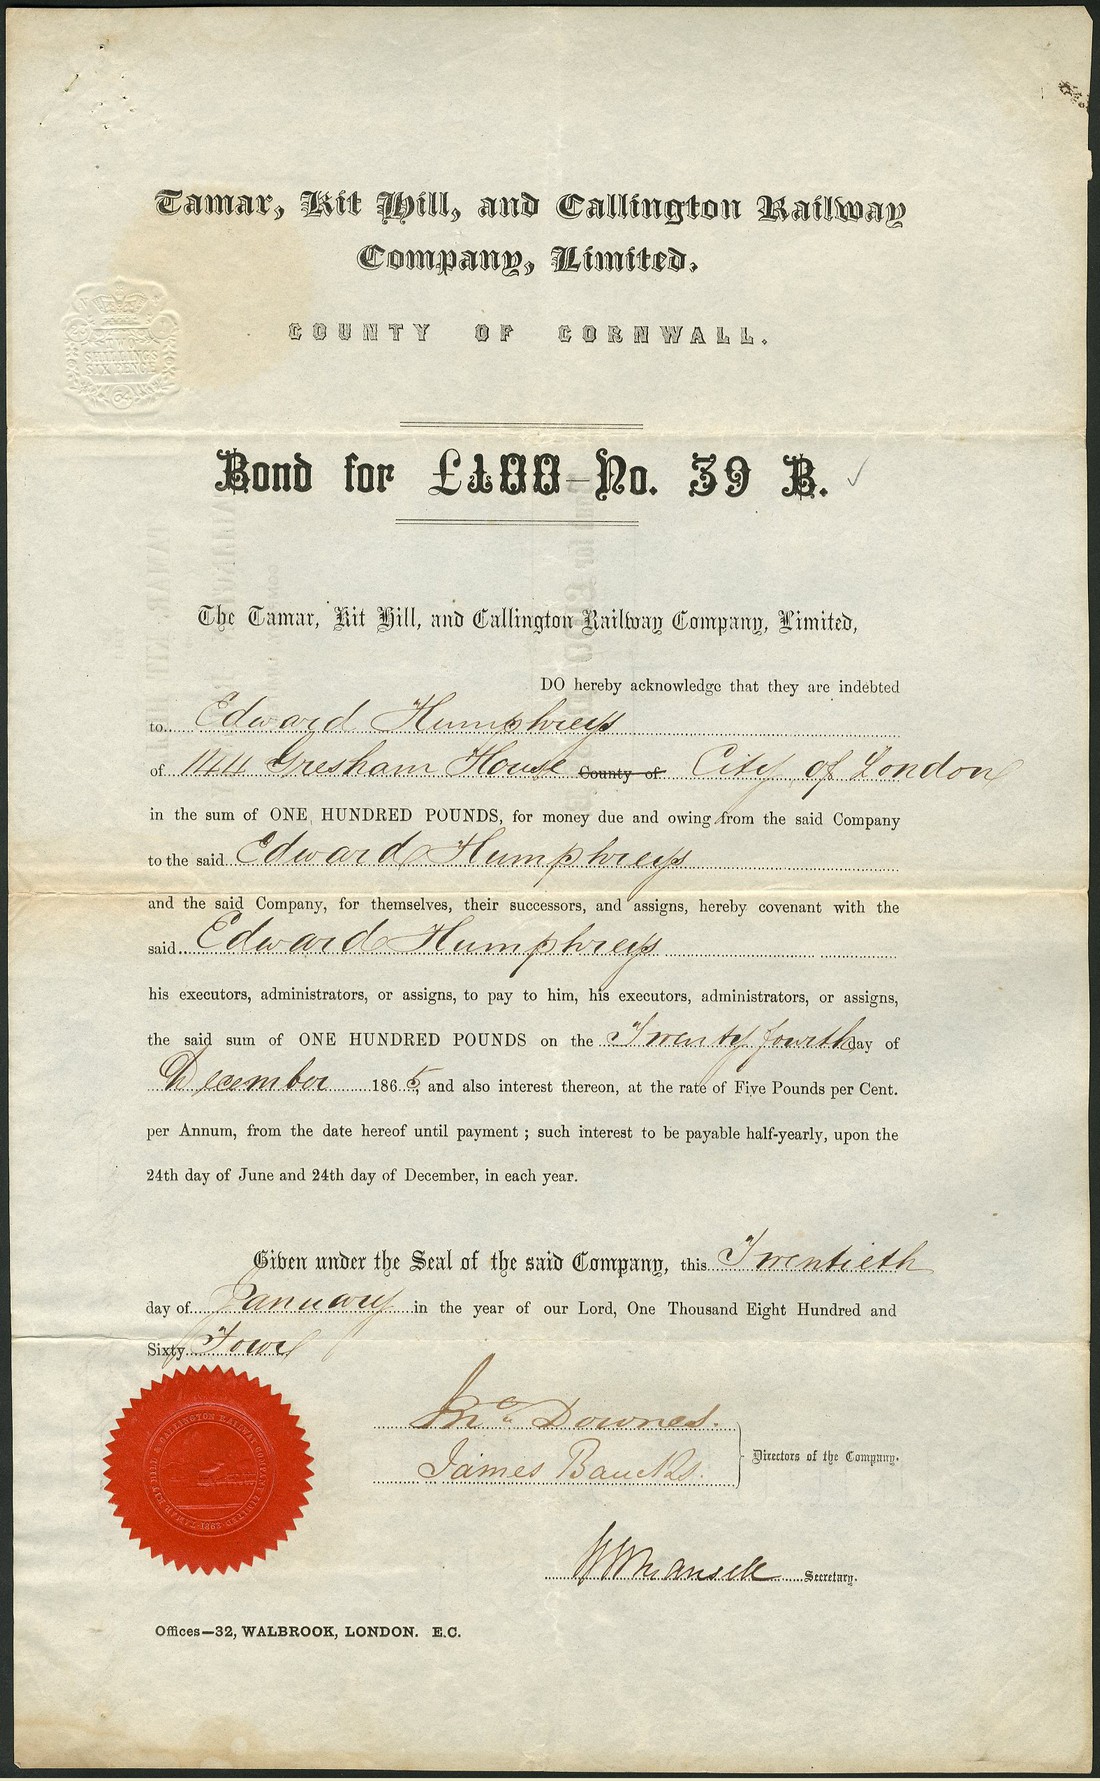 Tamar, Kit Hill, and Callington Railway
Company, Limited.
COUNTY OF CORNWALL.
TWO
SHILLINGS
SIX PENCE
Bond for £100—No. 39 B.
The Tamar, Kit Hill, and Callington Railway Company, Limited,
DO hereby acknowledge that they are indebted
to Edward Humphreys
of 144 Gresham House County of City of London
in the sum of ONE HUNDRED POUNDS, for money due and owing from the said Company
to the said Edward Humphreys
and the said Company, for themselves, their successors, and assigns, hereby covenant with the
said Edward Humphreys
his executors, administrators, or assigns, to pay to him, his executors, administrators, or assigns,
the said sum of ONE HUNDRED POUNDS on the Twenty fourth day of
December 1865, and also interest thereon, at the rate of Five Pounds per Cent.
per Annum, from the date hereof until payment ; such interest to be payable half-yearly, upon the
24th day of June and 24th day of December, in each year.
Given under the Seal of the said Company, this Twentieth
day of January in the year of our Lord, One Thousand Eight Hundred and
Sixty Four
Jno Downes.
James Baucks.
Directors of the Company.
Mansell Secretary.
TAMAR KIT HILL & CALLINGTON RAILWAY COMPANY LIMITED
Offices—32, WALBROOK, LONDON. E.C.